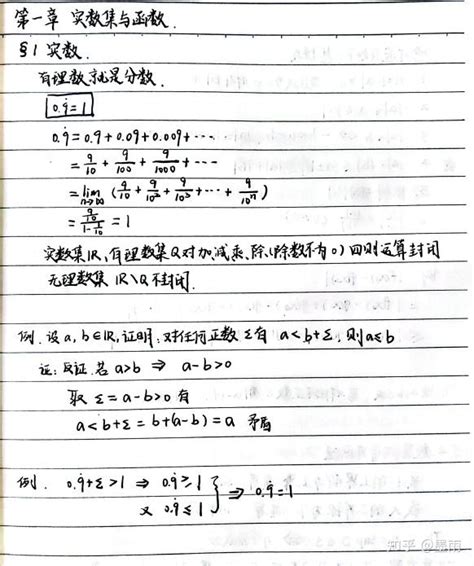 第一章 实数集与函数.
§1 实数.
有理数就是分数.
0.9̇=1
0.9̇=0.9+0.09+0.009+⋯
=9/10+9/100+9/1000+⋯
=lim n→∞ (9/10+9/10²+9/10³+⋯+9/10ⁿ)
=(9/10)/(1-1/10)=1
实数集ℝ,有理数集Q对加、减、乘、除(除数不为0)四则运算封闭
无理数集 ℝ\Q不封闭.
例.设a,b∈ℝ,证明:对任何正数ε有 a<b+ε,则a≤b
证:反证.若a>b ⇒ a-b>0
取 ε=a-b>0 有
a<b+ε=b+(a-b)=a 矛盾
例. 0.9̇+ε>1 ⇒ 0.9̇≥1
又 0.9̇≤1 } ⇒ 0.9̇=1
知乎 @墨雨